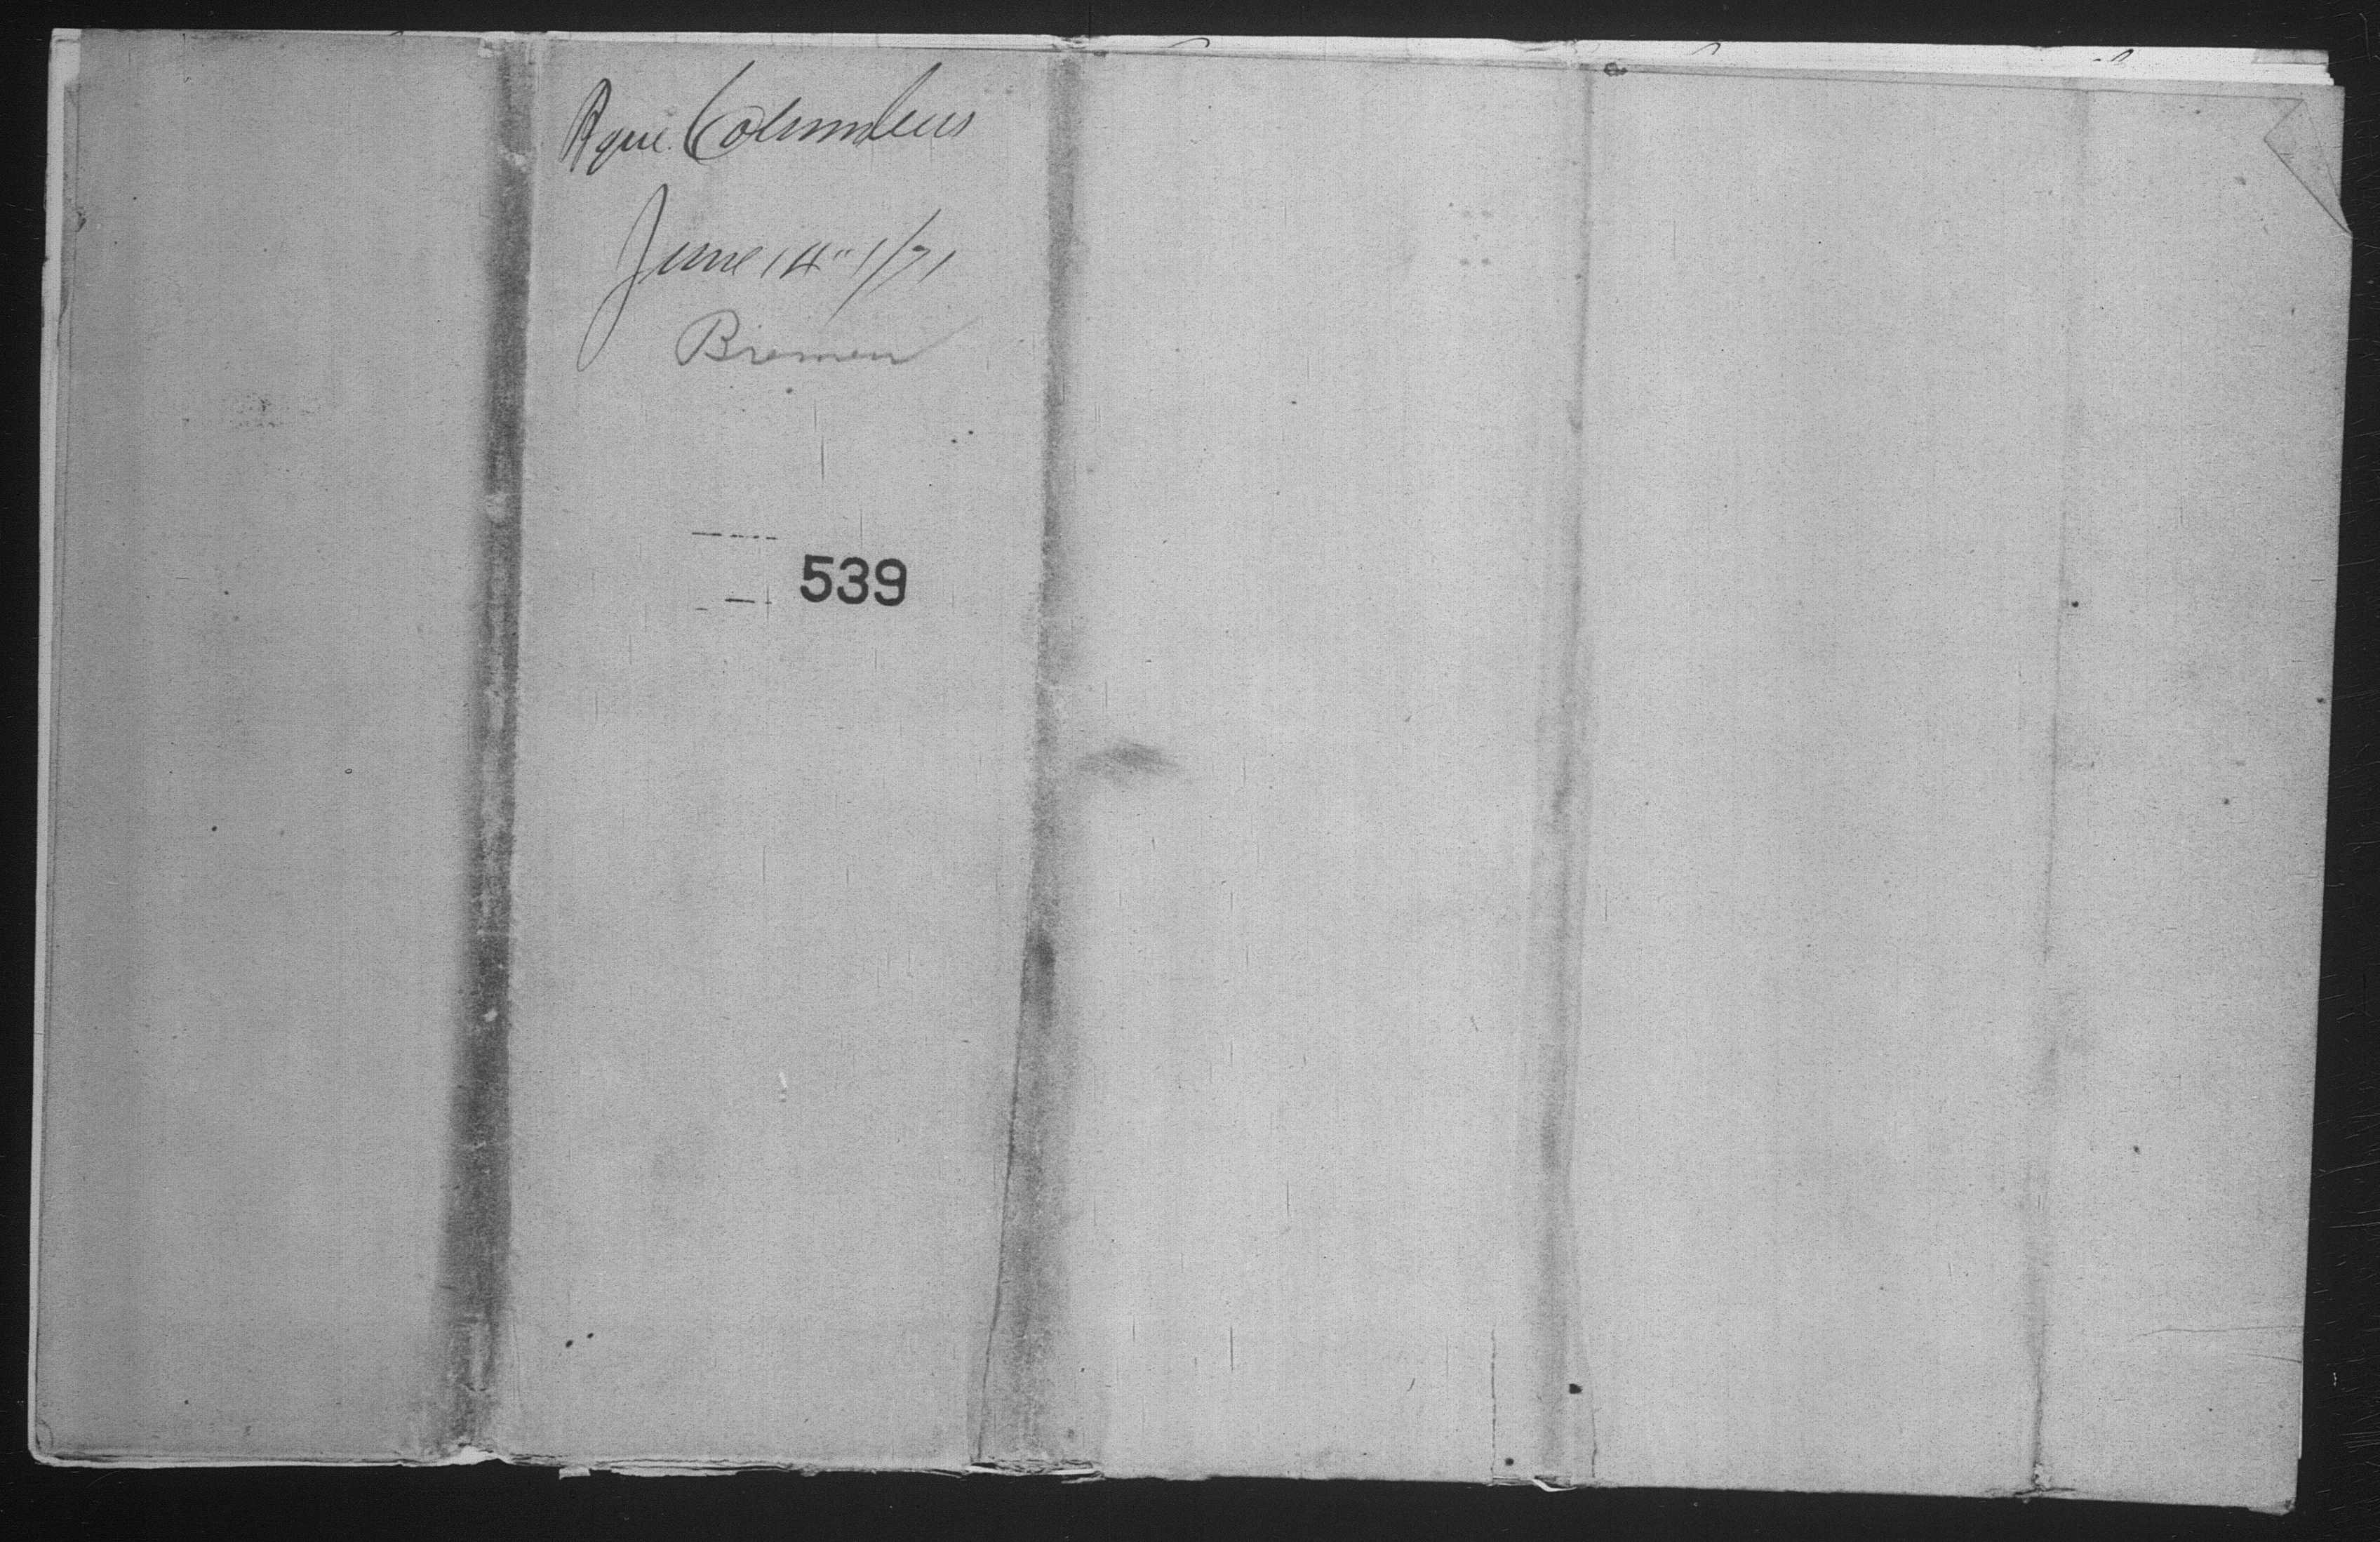 Bque. Columbus
June 14" 1/71
Bremen
539